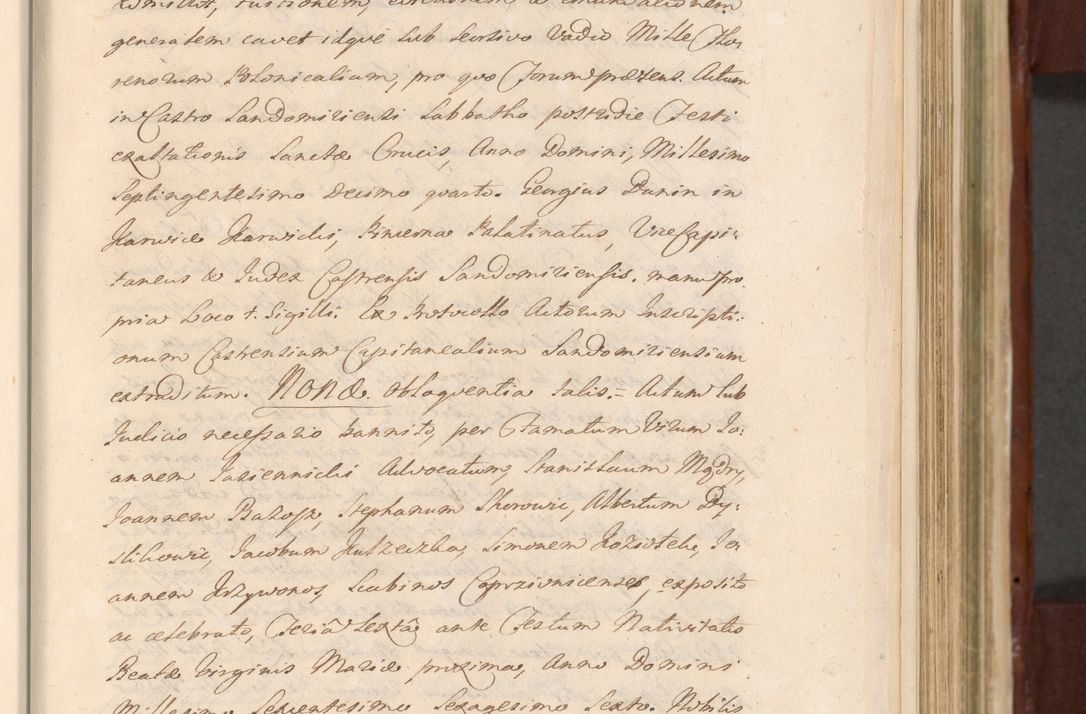 generalem cavet idque sub seorsivo Vadio Mille Flor
renorum Polonicalium, pro quo Forum præsens. Actum
in Castro Sandomiriensi Sabbatho postridie Festi
exaltationis Sanctæ Crucis, Anno Domini, Millesimo
Septingentesimo decimo quarto. Georgius Dunin in
Karwice Karwicki, Pincerna Palatinatus, Vice Capi:
taneus & Judex Castrensis Sandomiriensis. manu pro
pria Loco +. Sigilli. Ex Protocollo Actorum Inscripti:
onum Castrensium Capitanealium Sandomiriensium
extraditum. Nonæ. obloquentia talis.= Actum Sub
Judicio necessario bannito, per Famatum Virum Jo:
annem Jasiennicki Advocatum, Stanislaum Mądry,
Joannem Batosz, Stephanum Skorowic, Albertum Dy:
slikowic, Jacobum Kutzeczka, Simonem Koziołek, Jo
annem Krzywonos, Scabinos Coprzivnicenses, exposito
ac celebrato, Feriâ Sextâ ante Festum Nativitatis
Beatæ Virginis Mariæ proxima, Anno Domini
Millesimo Sexcentesimo Sexagesimo Sexto. Nobilis